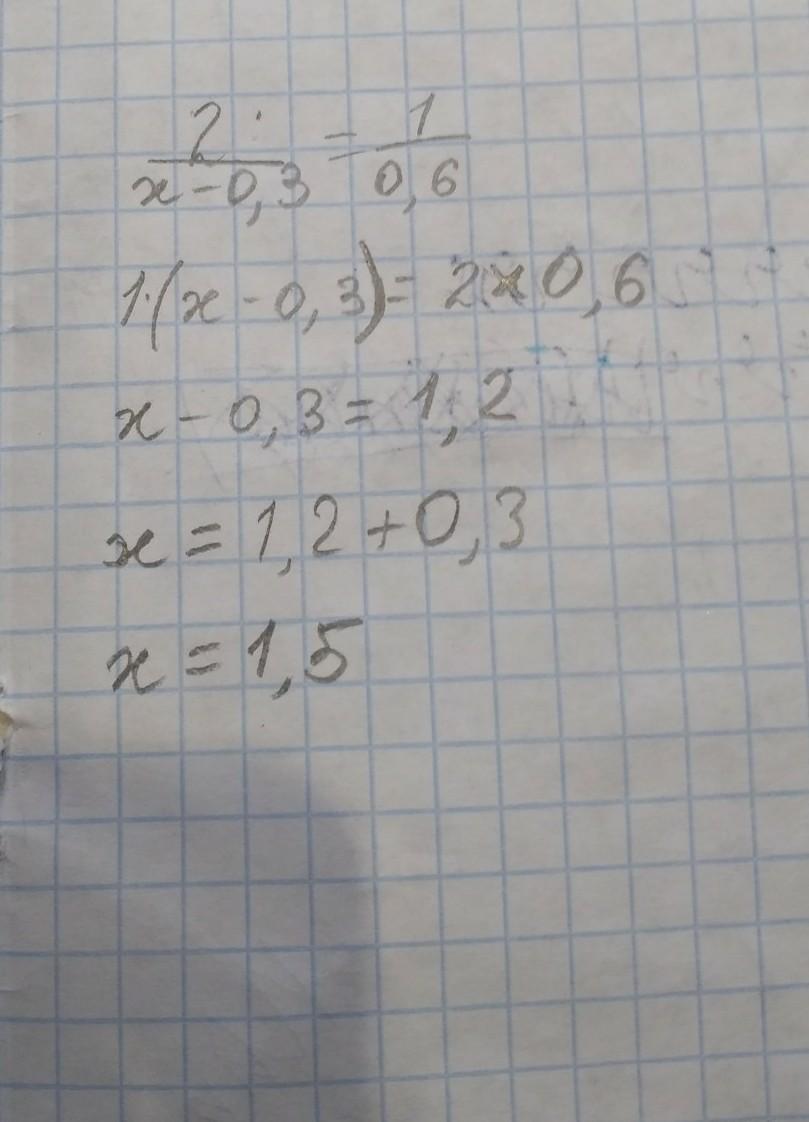 2 / (x-0,3) = 1 / 0,6
1·(x-0,3) = 2×0,6
x-0,3=1,2
x=1,2+0,3
x=1,5